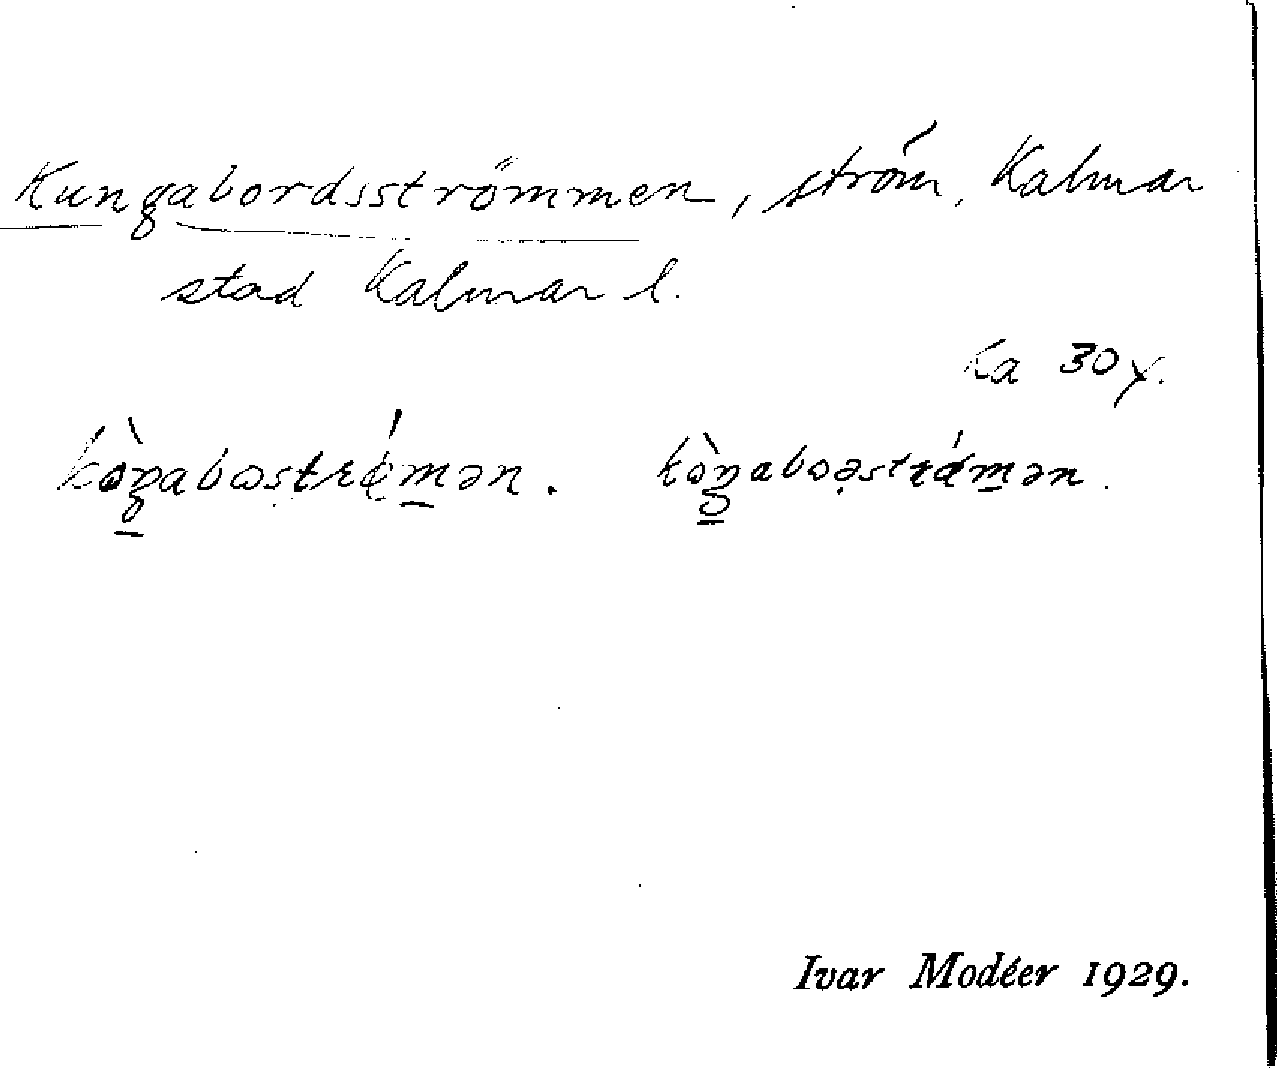 Kungabordsströmmen, ström, Kalmar
stad Kalmar l.
Ka 30 y.
kòŋabosträ́mən. kòŋaboəsträ́mən.
Ivar Modéer 1929.